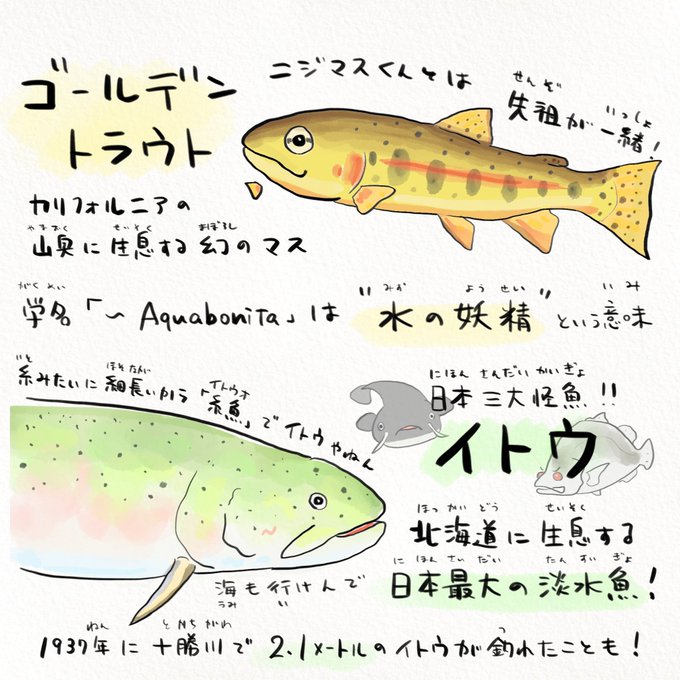 ゴールデン
トラウト
ニジマスくんとは
先祖が一緒!
せんぞ
いっしょ
カリフォルニアの
山奥に生息する幻のマス
やまおく
せいそく
まぼろし
学名「〜Aquabonita」は"水の妖精"という意味
がくめい
みず
ようせい
いみ
糸みたいに細長いから「糸魚」でイトウやねん
いと
ほそなが
イトウオ
日本三大怪魚!!
にほん さんだい かいぎょ
イトウ
北海道に生息する
ほっかいどう
せいそく
日本最大の淡水魚!
にほんさいだい
たんすいぎょ
海も行けんで
うみ
い
1937年に十勝川で2.1メートルのイトウが釣れたことも!
ねん
とかちがわ
つ